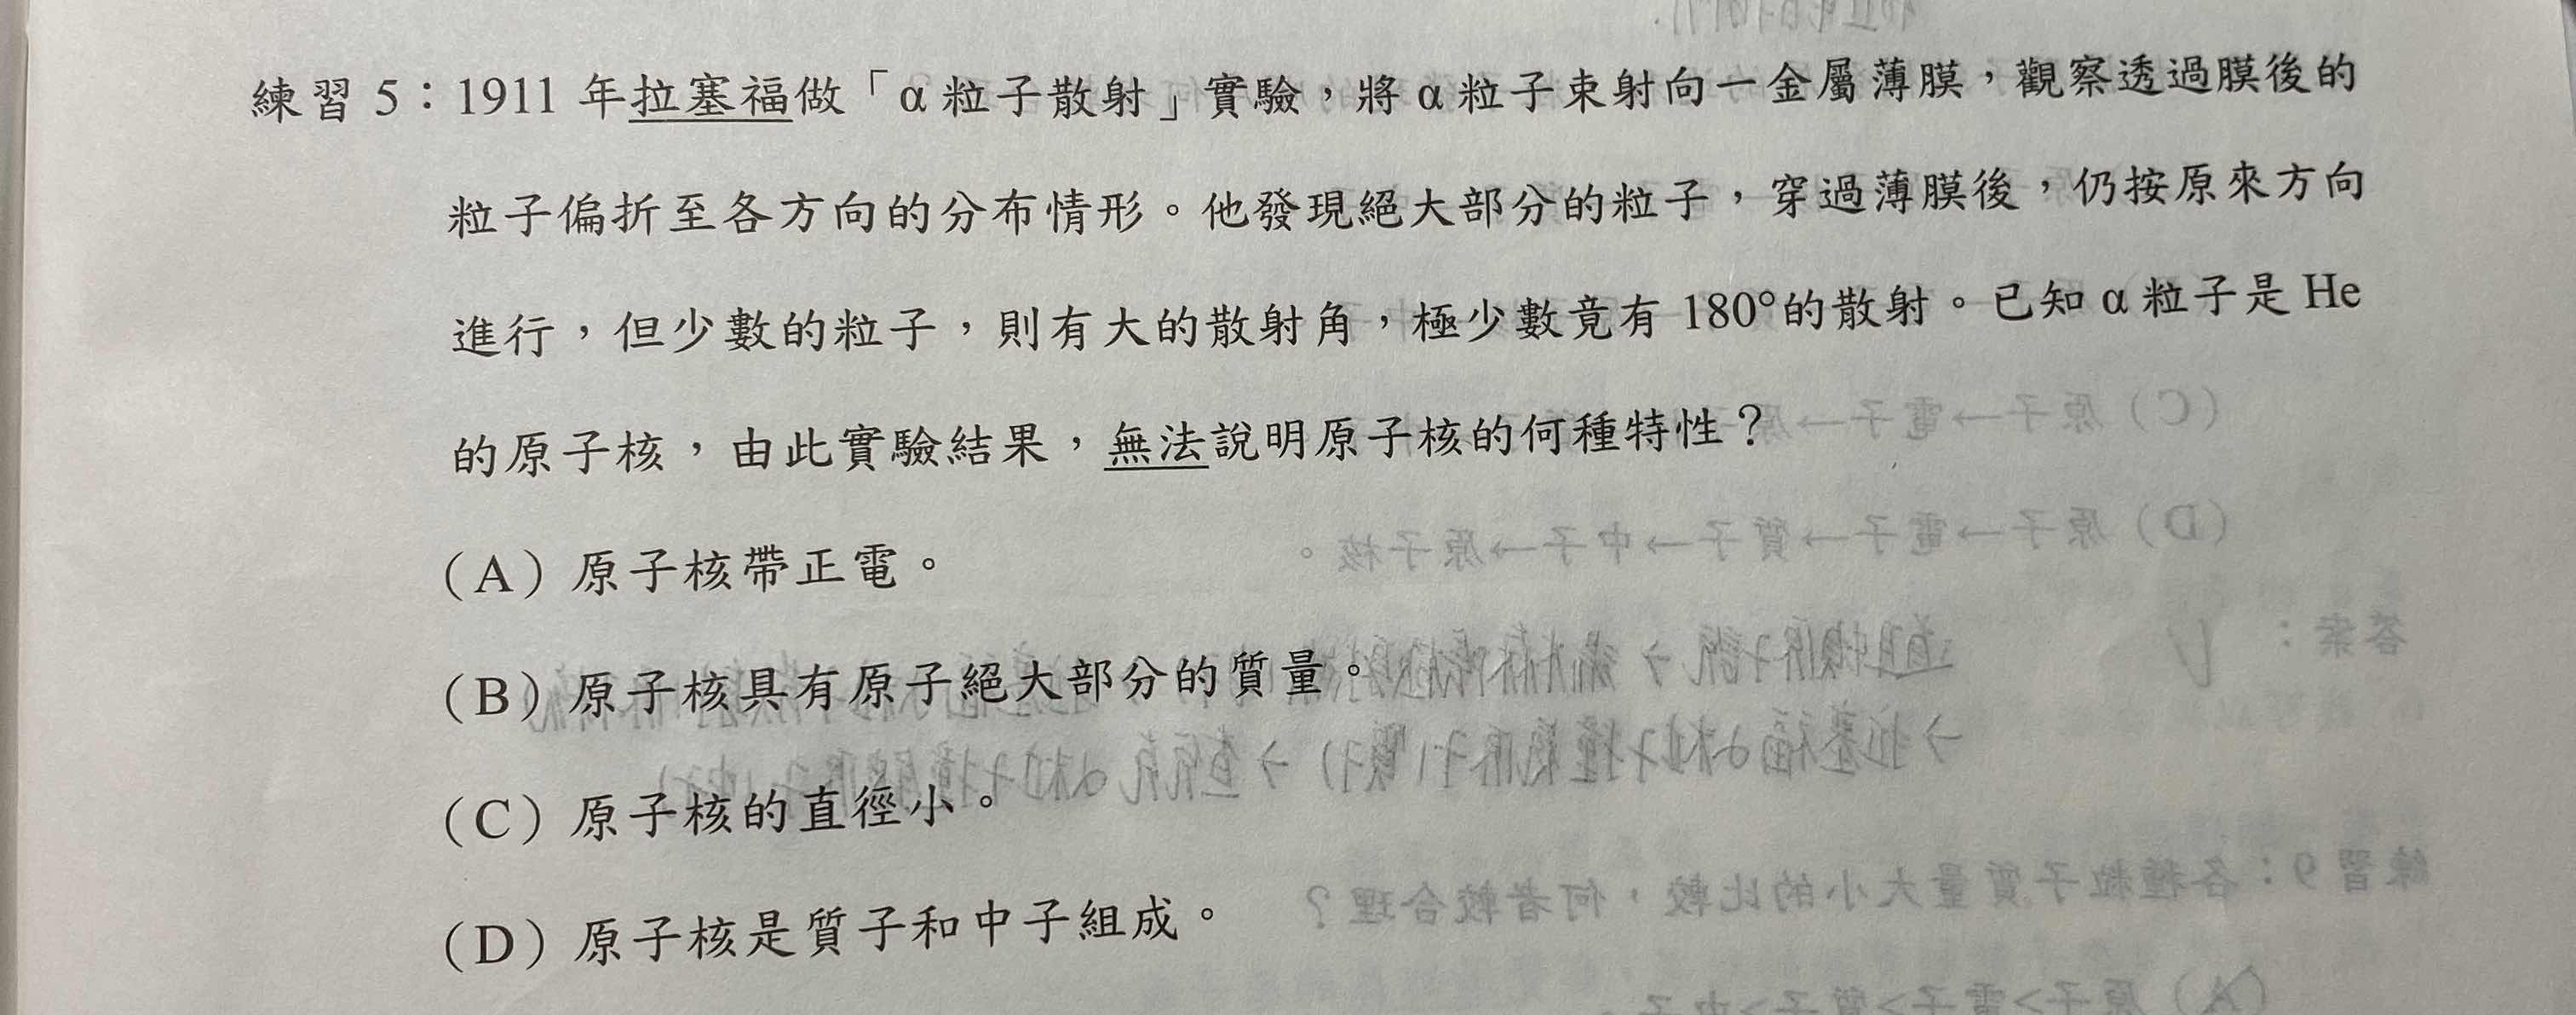 練習 5：1911 年拉塞福做「α 粒子散射」實驗，將 α 粒子束射向一金屬薄膜，觀察透過膜後的
粒子偏折至各方向的分布情形。他發現絕大部分的粒子，穿過薄膜後，仍按原來方向
進行，但少數的粒子，則有大的散射角，極少數竟有 180°的散射。已知 α 粒子是 He
的原子核，由此實驗結果，無法說明原子核的何種特性？
（A）原子核帶正電。
（B）原子核具有原子絕大部分的質量。
（C）原子核的直徑小。
（D）原子核是質子和中子組成。